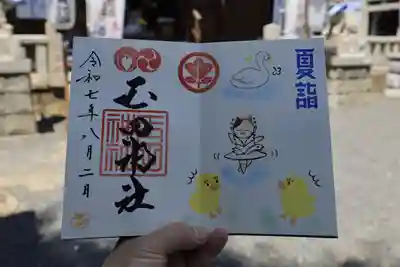 夏詣
23
玉田神社
令和七年八月二日